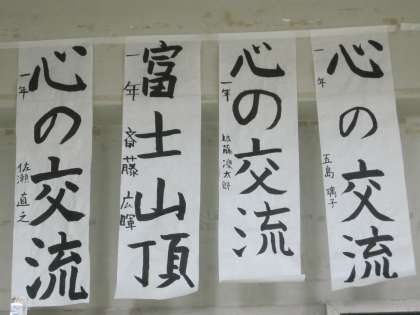 心の交流
一年
五島 璃子
心の交流
一年
近藤 凌太郎
富士山頂
一年
斎藤 広暉
心の交流
一年
佐瀬 直之